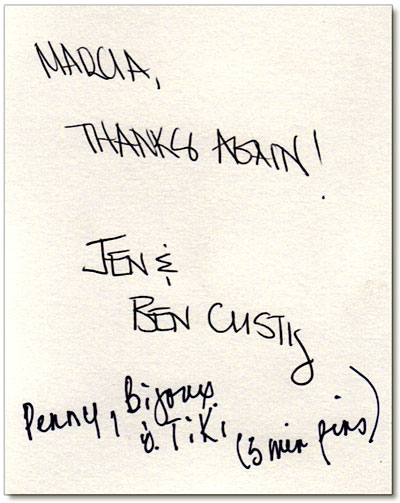 MARCIA,
THANKS AGAIN!
JEN &
BEN CUSTIS
Penny, Bijoux
& TiKi (3 min pins)